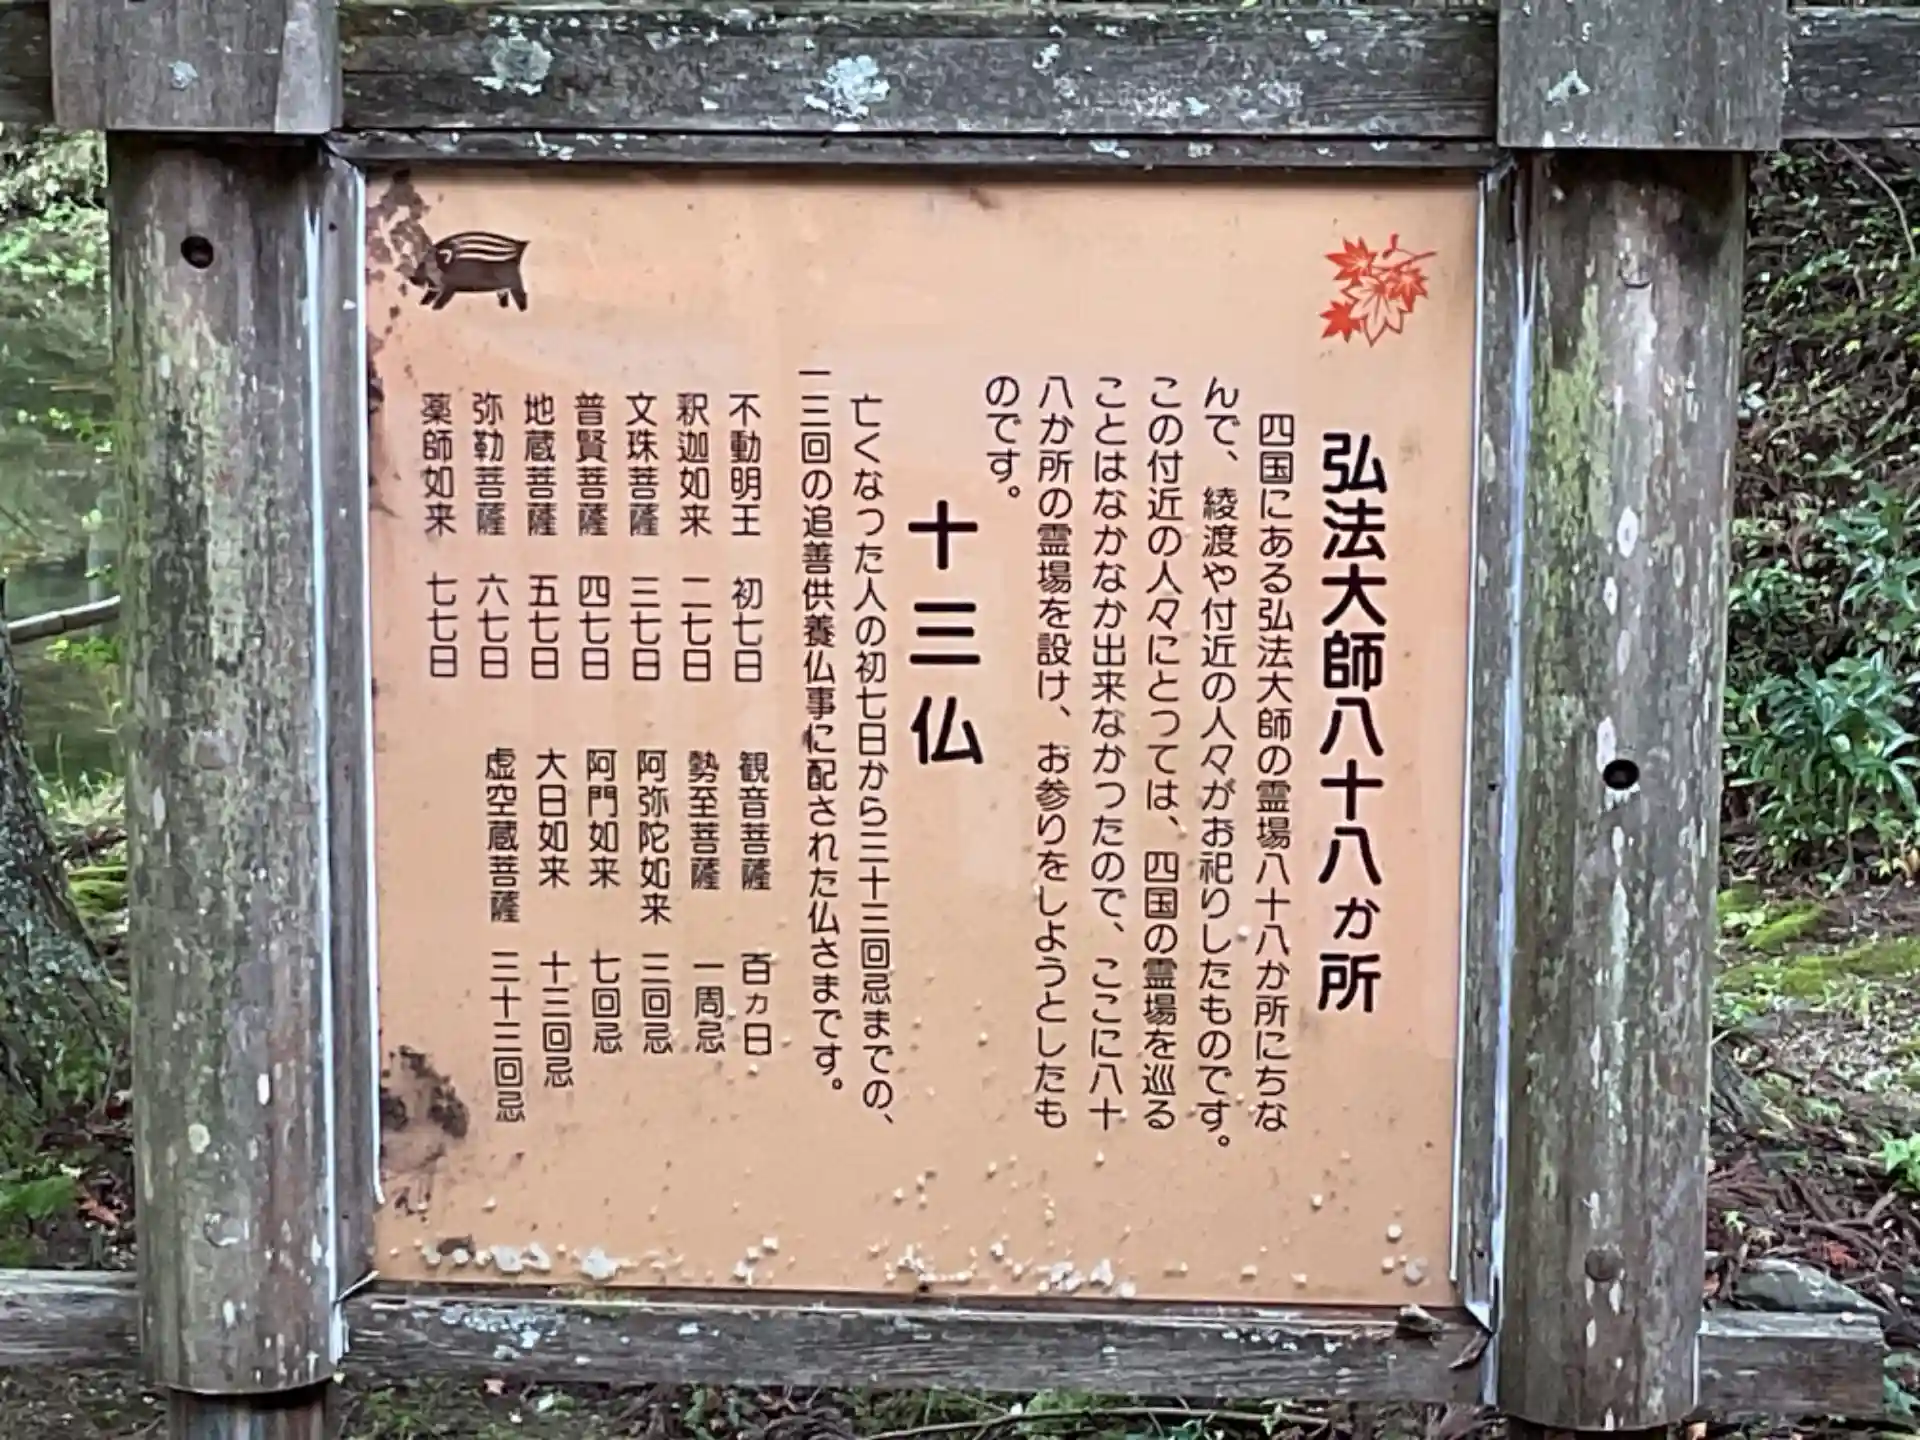 弘法大師八十八か所
四国にある弘法大師の霊場八十八か所にちな
んで、綾渡や付近の人々がお祀りしたものです。
この付近の人々にとっては、四国の霊場を巡る
ことはなかなか出来なかったので、ここに八十
八か所の霊場を設け、お参りをしようとしたも
のです。
十三仏
亡くなった人の初七日から三十三回忌までの、
一三回の追善供養仏事に配された仏さまです。
不動明王 初七日
釈迦如来 二七日
文珠菩薩 三七日
普賢菩薩 四七日
地蔵菩薩 五七日
弥勒菩薩 六七日
薬師如来 七七日
観音菩薩 百ヵ日
勢至菩薩 一周忌
阿弥陀如来 三回忌
阿門如来 七回忌
大日如来 十三回忌
虚空蔵菩薩 三十三回忌